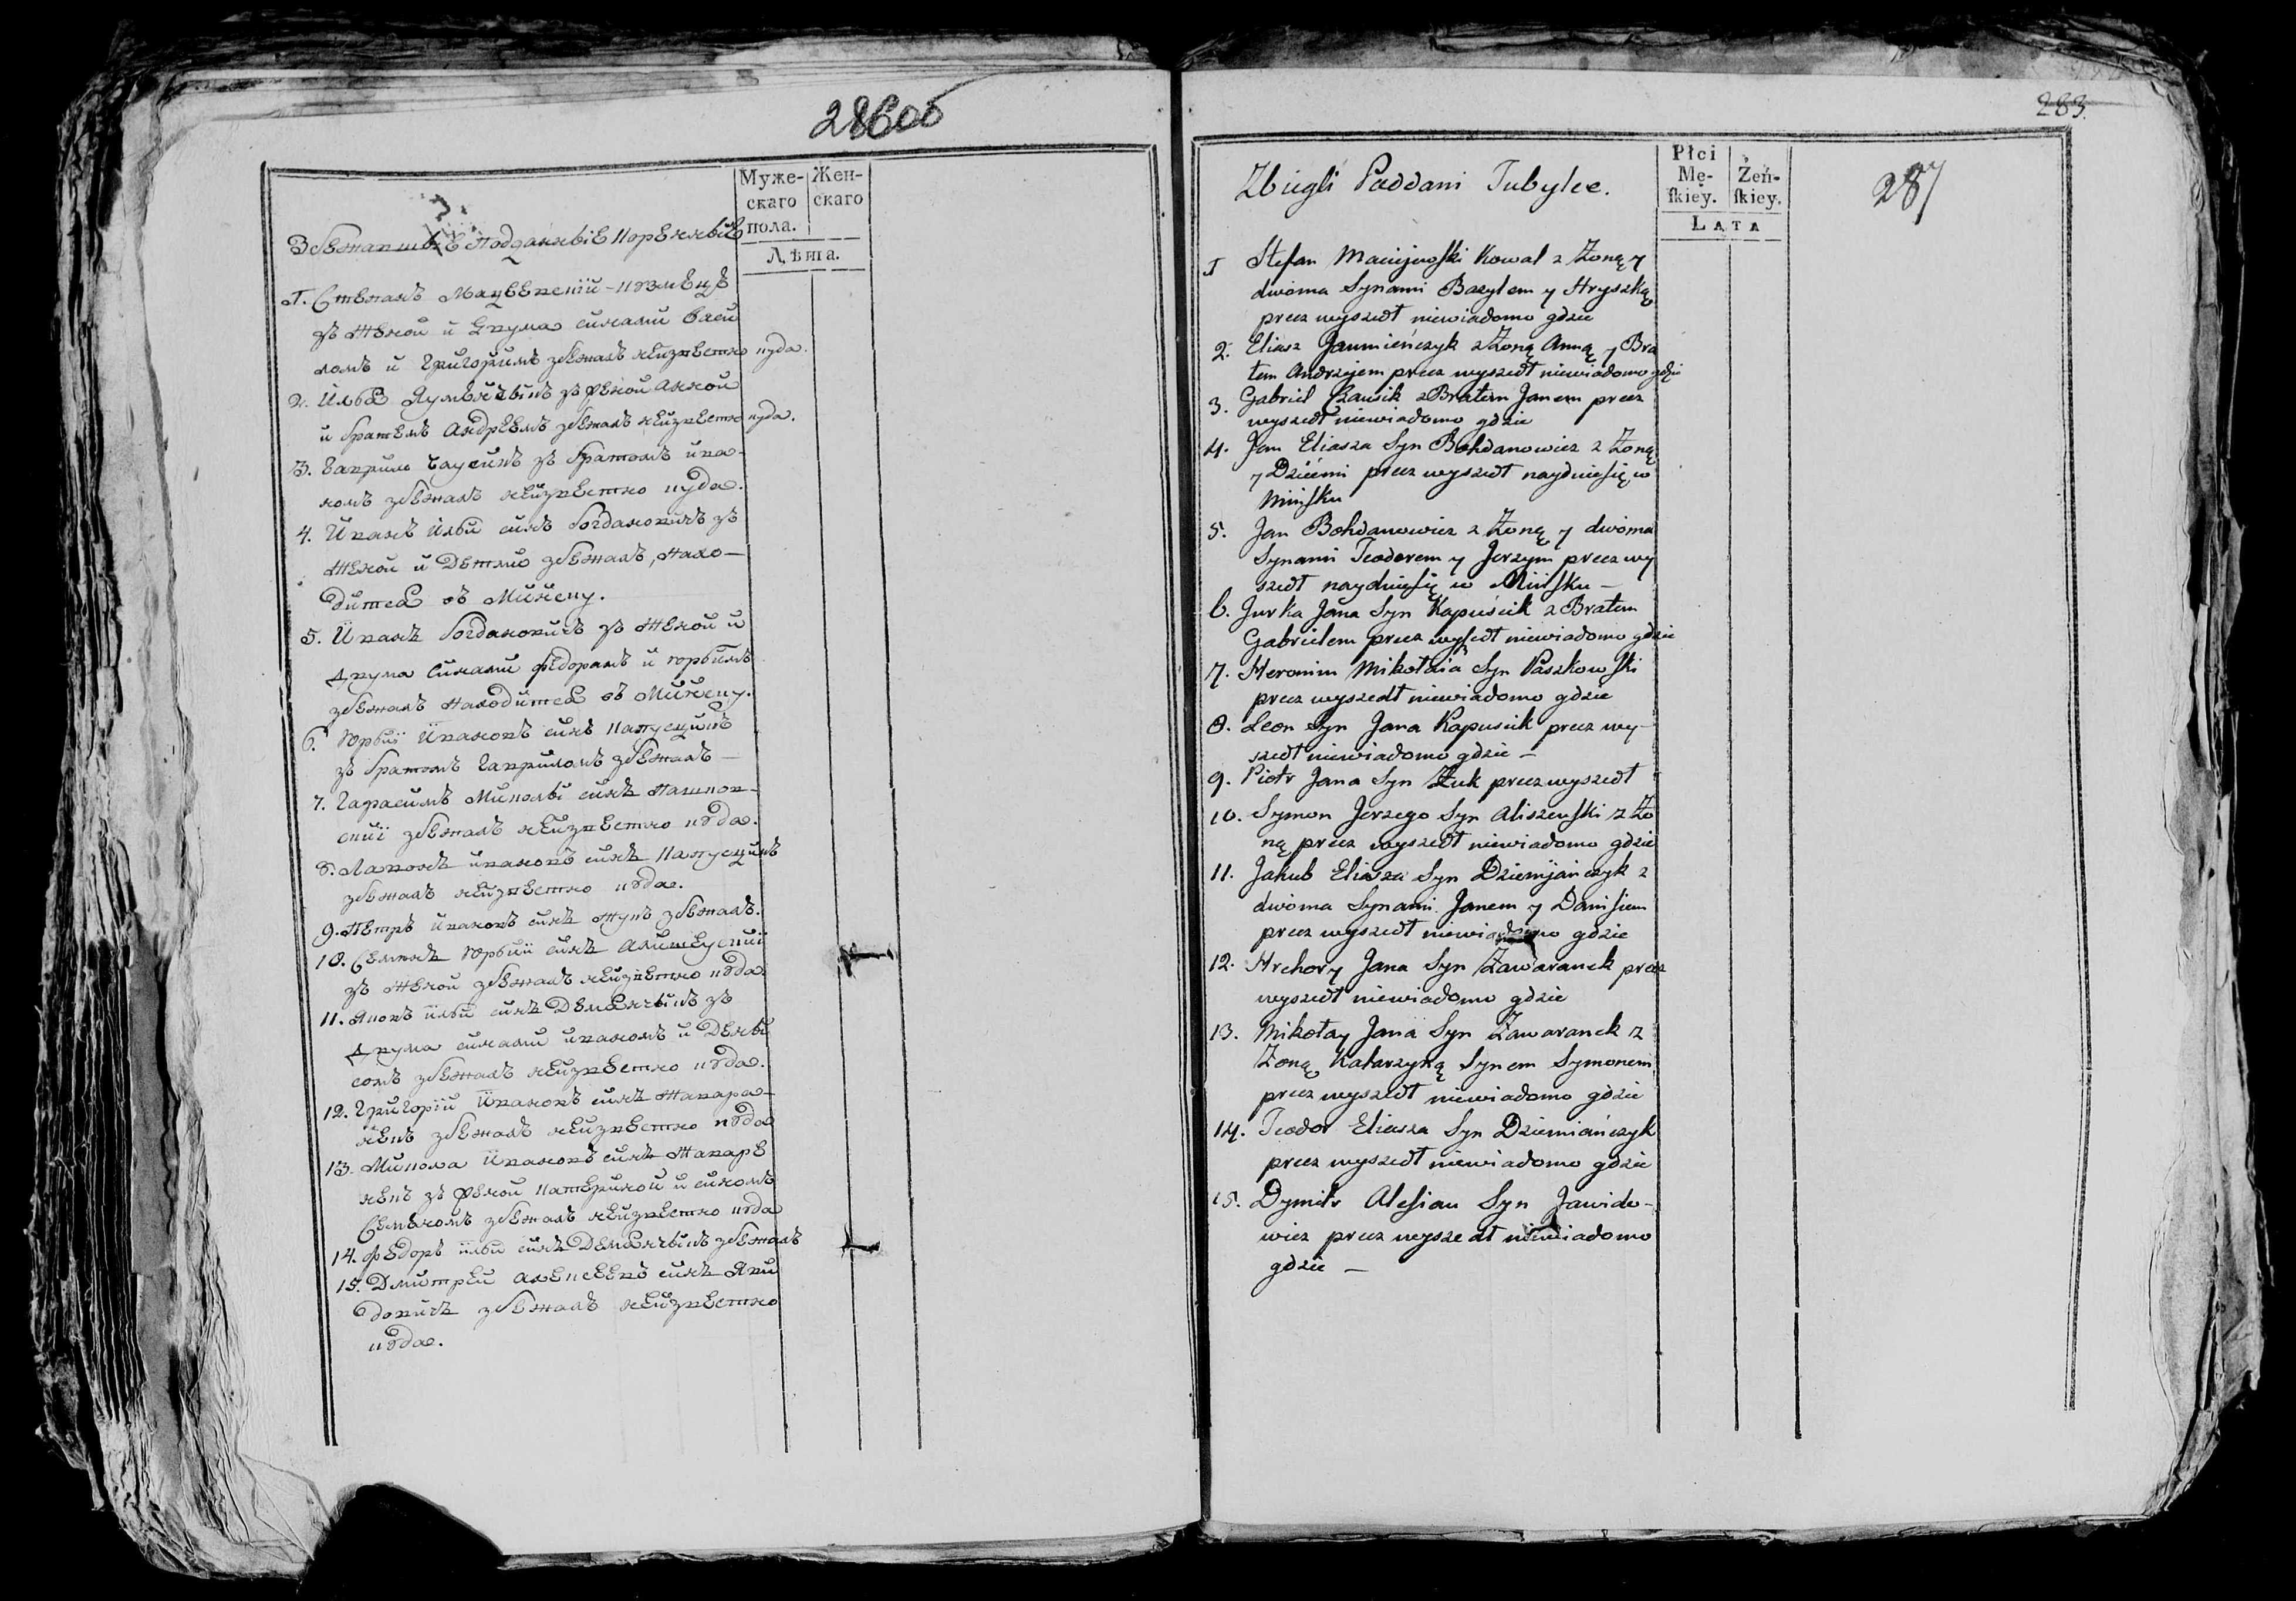 286об
Муже-
скаго
пола.
Жен-
скаго
Лѣта.
Збежавшые подданные коренные
1. Степанъ Мацеевскій кузнецъ
зъ женой и двума синами Васи
ломъ и Григоримъ збежалъ неизвестно куда.
2. Илья Яуменчыкъ зъ женой Анной
и братемъ Андреемъ збежалъ неизвестно куда.
3. Гаврило Чаусикъ зъ братомъ ива-
номъ збежалъ неизвестно куда.
4. Иванъ Ильи синъ Богдановичъ зъ
женой и детми збежалъ, нахо-
дитса въ Минску.
5. Иванъ Богдановичъ зъ женой и
двума синами Федорамъ и юрьимъ
збежалъ находитса въ Минску.
6. Юрьий Ивановъ синъ Капусцикъ
зъ братомъ Гавриломъ збежалъ —
7. Гарасимъ Миколы синъ Пашков-
ский збежалъ неизвестно куда.
8. Лавонъ ивановъ синъ Капусцикъ
збежалъ неизвестно куда.
9. Петръ ивановъ синъ жукъ збежалъ.
10. Семонъ Юрьий синъ Алишеуский
зъ женой збежалъ неизвестно куда
11. Яковъ ильи синъ Демьянчыкъ зъ
двума синами иваномъ и Деньи
сомъ збежалъ неизвестно куда.
12. Григорий Ивановъ синъ жавара-
некъ збежалъ неизвестно куда
13. Микола Ивановъ синъ жаваре
некъ зъ женой Катериной и синомъ
Семеномъ збежалъ неизвестно куда
14. Федоръ ильи синъ Демьянчыкъ збежалъ
15. Дмитрей Алексеевъ синъ Яви
довичъ збежалъ неизвестно
куда.
283
287
Płci
Mę-
ſkiey.
Żeń-
ſkiey.
LATA
Zbiegli Poddani Tubylce.
1 Stefan Maciejewſki Kowal z Żoną y
dwoma Synami Bazylem y Hryszką
precz wyszedł niewiadomo gdzie
2. Eliasz Jaumieńczyk z Żoną Anną y Bra
tem Andrzejem precz wyszedł niewiadomo gdzie
3. Gabriel Czausik z Bratem Janem precz
wyszedł niewiadomo gdzie
4. Jan Eliasza Syn Bohdanowicz z Żoną
y Dziećmi precz wyszedł naydzieſię w
Minſku
5. Jan Bohdanowicz z Żoną y dwoma
Synami Teodorem y Jerzym precz wy
szedł naydzieſię w Minſku —
6. Jurka Jana Syn Kapuścik z Bratem
Gabrielem precz wyszedł niewiadomo gdzie
7. Heronim Mikołaia Syn Paszkowſki
precz wyszedł niewiadomo gdzie
8. Leon Syn Jana Kapusik precz wy-
szedł niewiadomo gdzie —
9. Piotr Jana Syn Żuk precz wyszedł
10. Symon Jerzego Syn Aliszewſki z Żo
ną precz wyszedł niewiadomo gdzie
11. Jakub Eliasza Syn Dziemjańczyk z
dwoma Synami Janem y Daniſiem
precz wyszedł niewiadomo gdzie
12. Hrehory Jana Syn Żawaranek precz
wyszedł niewiadomo gdzie
13. Mikołay Jana Syn Żawaranek z
Żoną Katarzyną Synem Symonem
precz wyszedł niewiadomo gdzie
14. Teodor Eliasza Syn Dziemiańczyk
precz wyszedł niewiadomo gdzie
15. Dymitr Aleſiau Syn Jawido-
wicz precz wyszedł niewiadomo
gdzie —